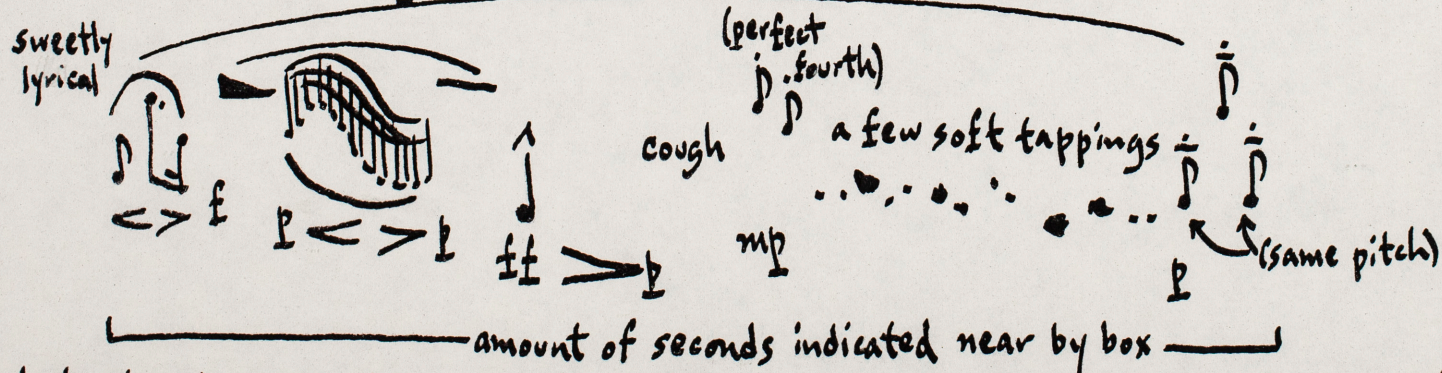 sweetly
lyrical
(perfect
fourth)
cough
a few soft tappings
f
p < > p
ff > p
mp
p
(same pitch)
amount of seconds indicated near by box